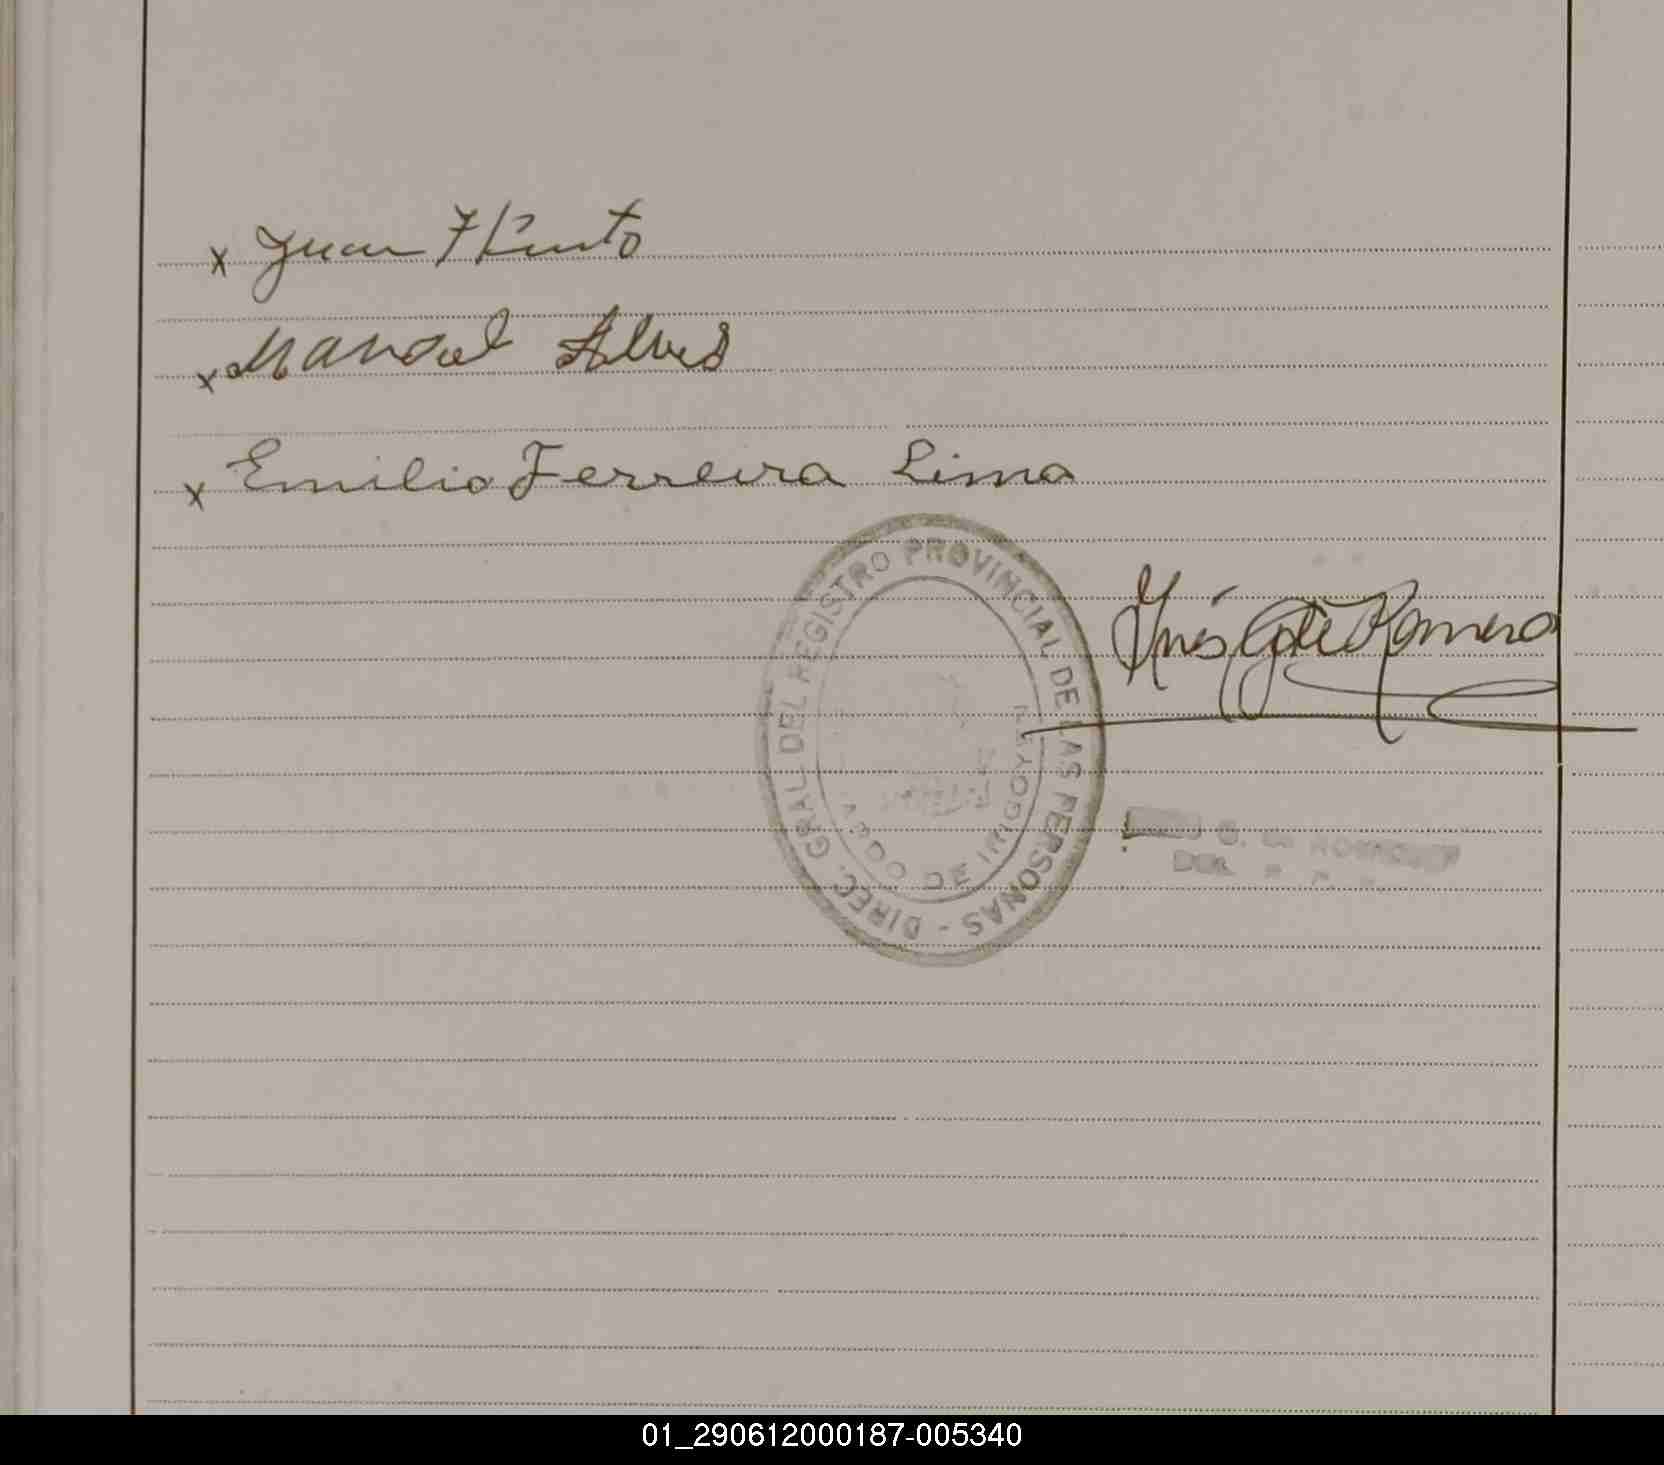 x Juan F Pinto
x Manoel Alves
x Emilio Ferreira Lima
DIREC. GRAL DEL REGISTRO PROVINCIAL DE LAS PERSONAS -
DE IRIGOYEN
Inés G de Romero
G. de ROMERO
DEL.
01_290612000187-005340